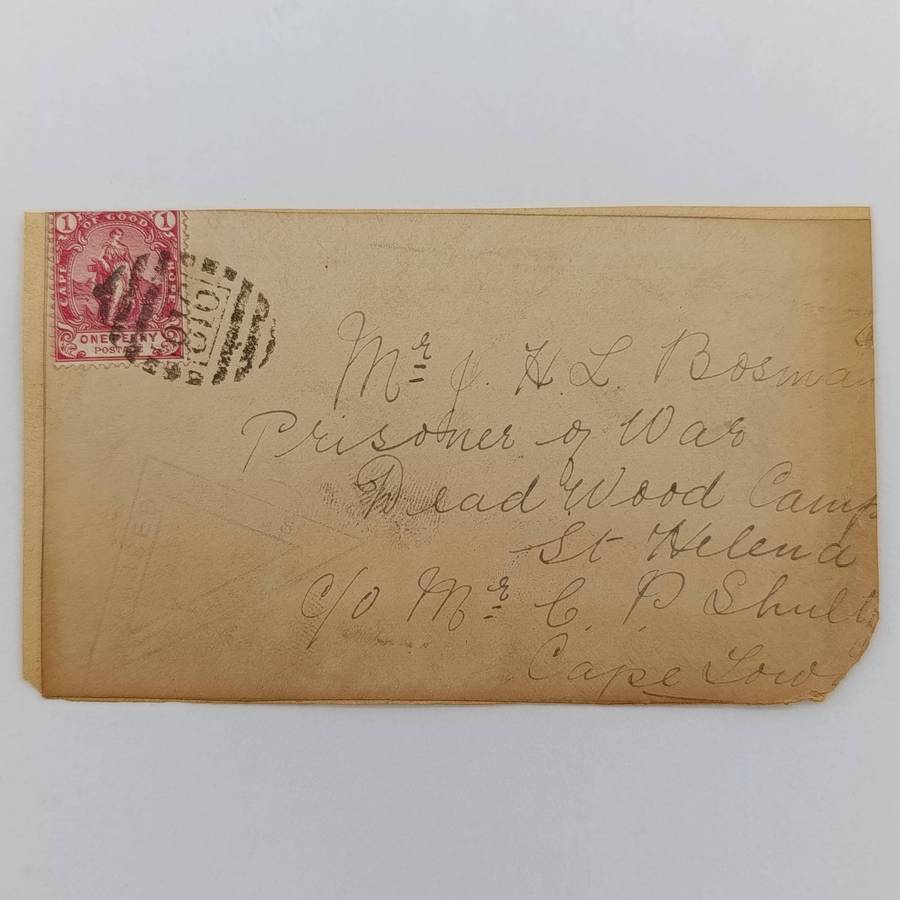 1 OF GOOD 1
CAPE HOPE
ONE PENNY
POSTAGE
Mr J. H. L. Bosman
Prisoner of War
Dead Wood Camp
St Helena
c/o Mr C. P. Shultz
Cape Tow